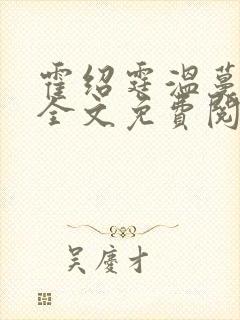 霍绍霆温蔓
全文免费阅
吴庆才